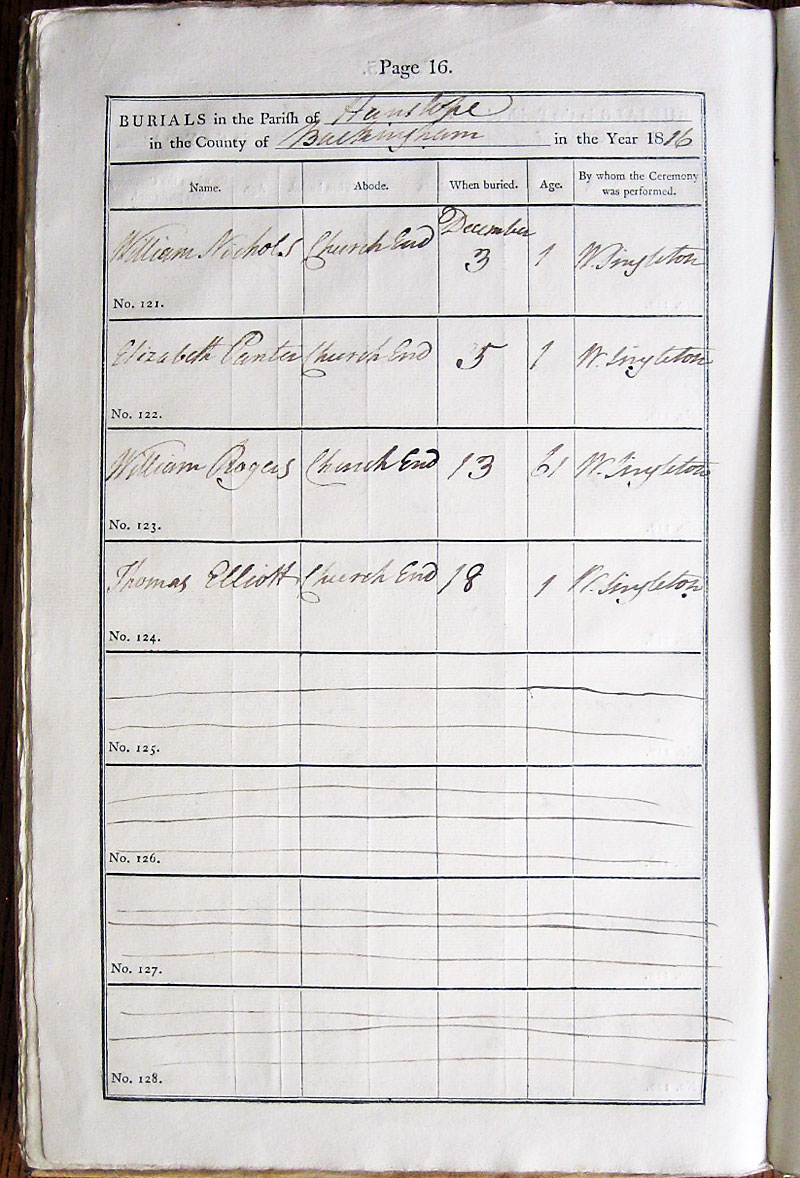 Page 16.
BURIALS in the Parish of Hanslope
in the County of Buckingham in the Year 1816
Name. Abode. When buried. Age. By whom the Ceremony was performed.
December
William Nichols Church End 3 1 W. Singleton
No. 121.
Elizabeth Panter Church End 5 1 W. Singleton
No. 122.
William Rogers Church End 13 61 W. Singleton
No. 123.
Thomas Elliott Church End 18 1 W. Singleton
No. 124.
No. 125.
No. 126.
No. 127.
No. 128.